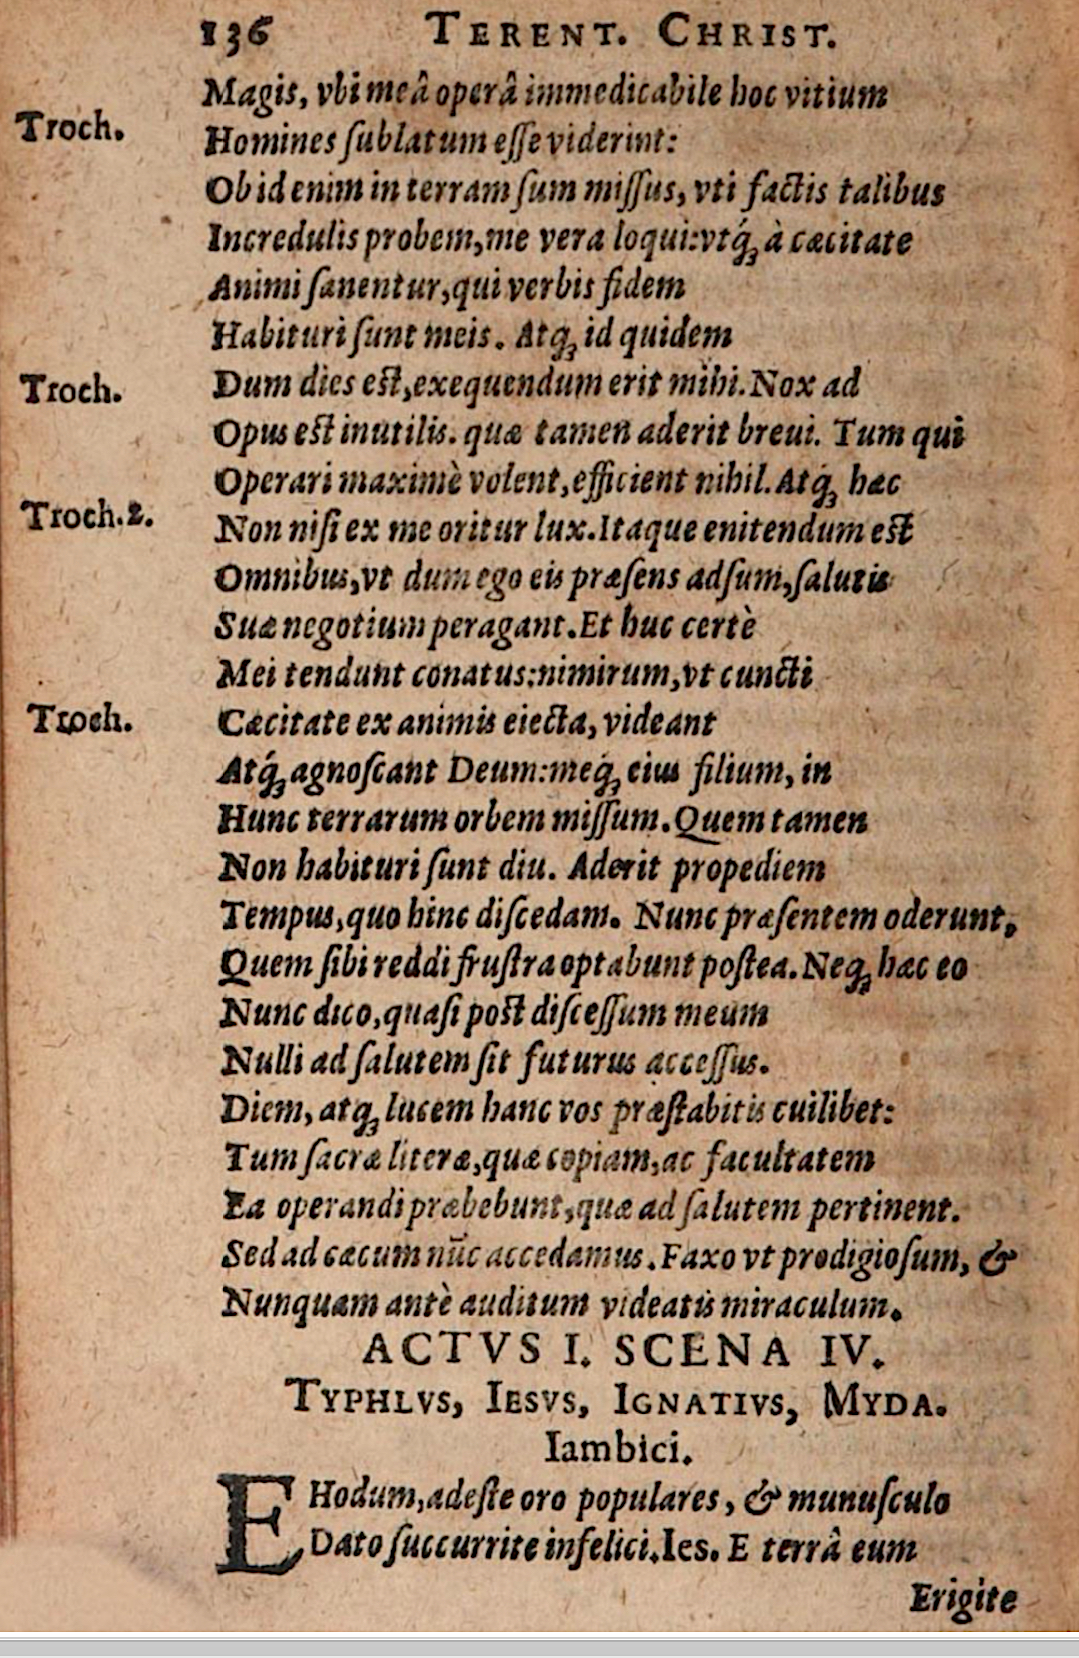 136 TERENT. CHRIST.
Magis, vbi meâ operâ immedicabile hoc vitium
Troch.
Homines ſublatum eſſe viderint:
Ob id enim in terram ſum miſſus, vti factis talibus
Incredulis probem, me vera loqui: vtq́ꝫ à cæcitate
Animi ſanentur, qui verbis fidem
Habituri ſunt meis. Atqꝫ id quidem
Troch. Dum dies eſt, exequendum erit mihi. Nox ad
Opus eſt inutilis. quæ tamen aderit breui. Tum qui
Operari maximè volent, efficient nihil. Atq́ꝫ hæc
Troch. 2. Non niſi ex me oritur lux. Itaque enitendum eſt
Omnibus, vt dum ego eis præſens adſum, ſalutis
Suæ negotium peragant. Et huc certè
Mei tendunt conatus: nimirum, vt cuncti
Troch. Cæcitate ex animis eiecta, videant
Atq́ꝫ agnoſcant Deum: meq́ꝫ eius filium, in
Hunc terrarum orbem miſſum. Quem tamen
Non habituri ſunt diu. Aderit propediem
Tempus, quo hinc diſcedam. Nunc præſentem oderunt,
Quem ſibi reddi fruſtra optabunt poſtea. Neqꝫ hæc eo
Nunc dico, quaſi poſt diſceſſum meum
Nulli ad ſalutem ſit futurus acceſſus.
Diem, atqꝫ lucem hanc vos præſtabitis cuilibet:
Tum ſacræ literæ, quæ copiam, ac facultatem
Ea operandi præbebunt, quæ ad ſalutem pertinent.
Sed ad cæcum nūc accedamus. Faxo vt prodigioſum, &
Nunquam antè auditum videatis miraculum.
ACTVS I. SCENA IV.
TYPHLVS, IESVS, IGNATIVS, MYDA.
Iambici.
EHodum, adeſte oro populares, & munuſculo
Dato ſuccurrite infelici. Ies. E terrâ eum
Erigite